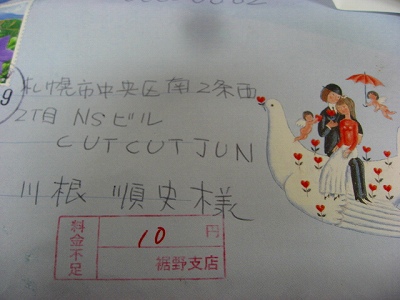 札幌市中央区南2条西
2丁目 NSビル
CUTCUTJUN
川根 順史様
料金不足 10円
裾野支店
9